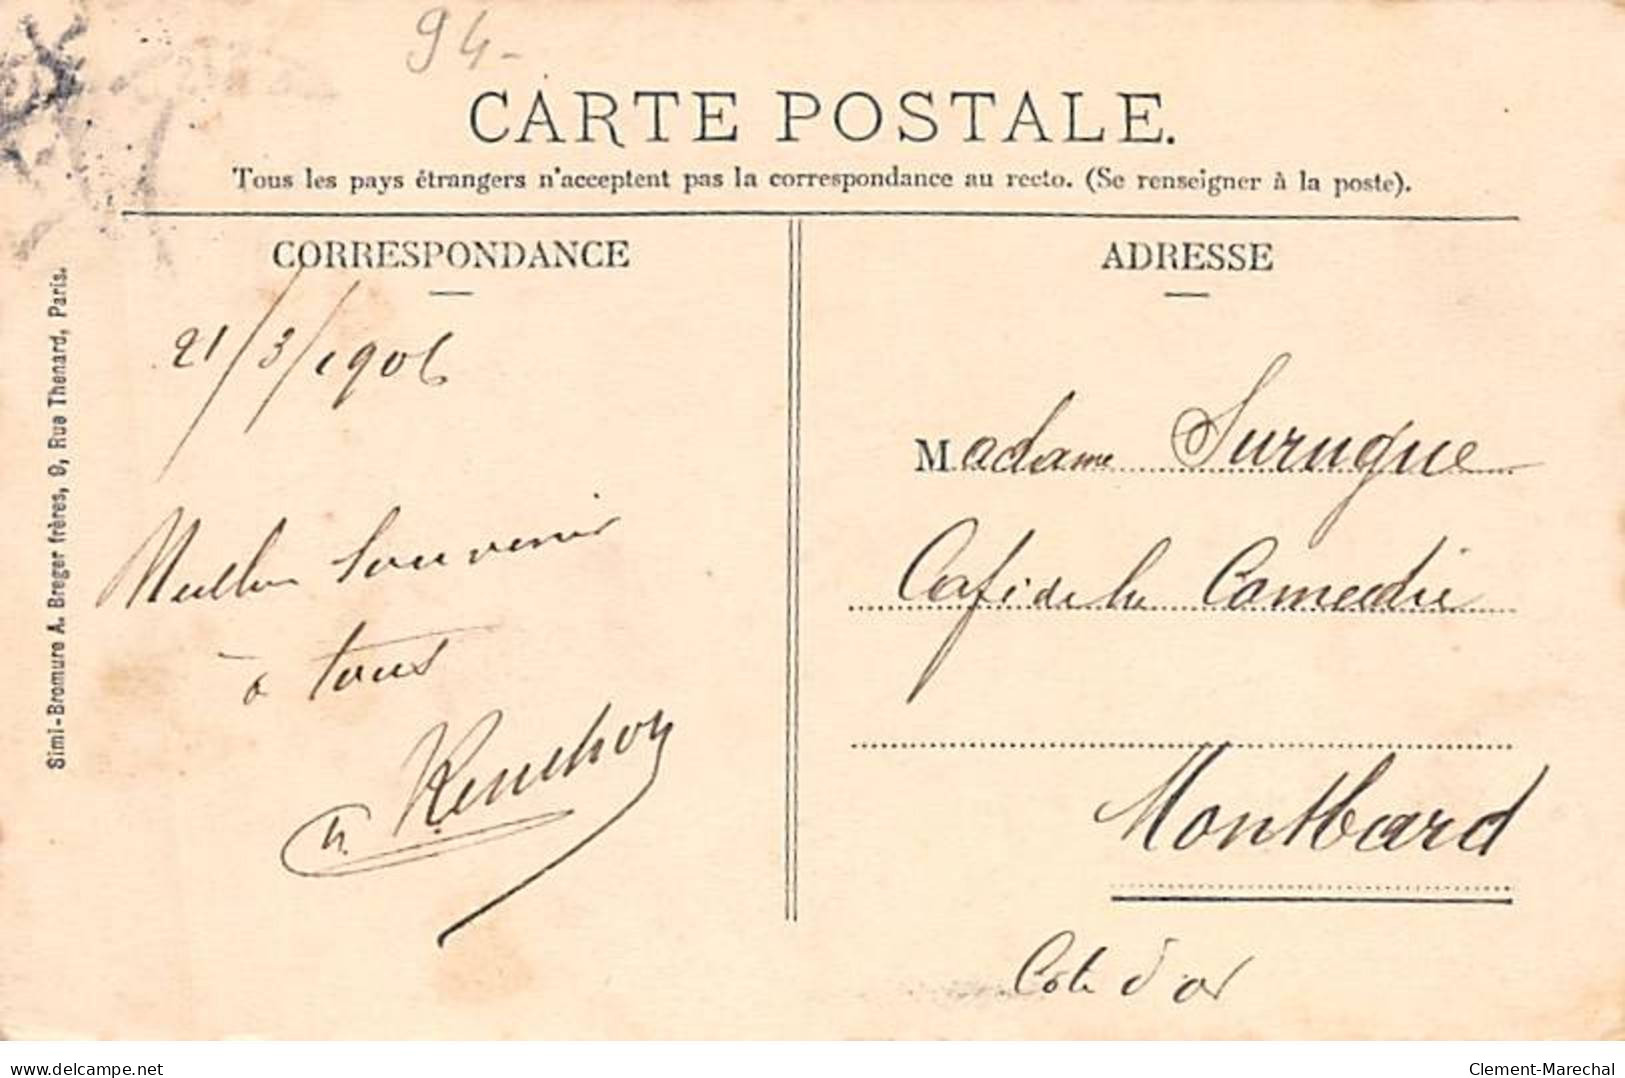 94-
CARTE POSTALE.
Tous les pays étrangers n'acceptent pas la correspondance au recto. (Se renseigner à la poste).
CORRESPONDANCE
21/3/1906
souvenir
à tous
Simi-Bromure A. Breger frères, 9, Rue Thenard, Paris.
ADRESSE
Madame Surugue
Café de la Comedie
Montbard
Cote d'or
delcampe.net
Clement-Marechal